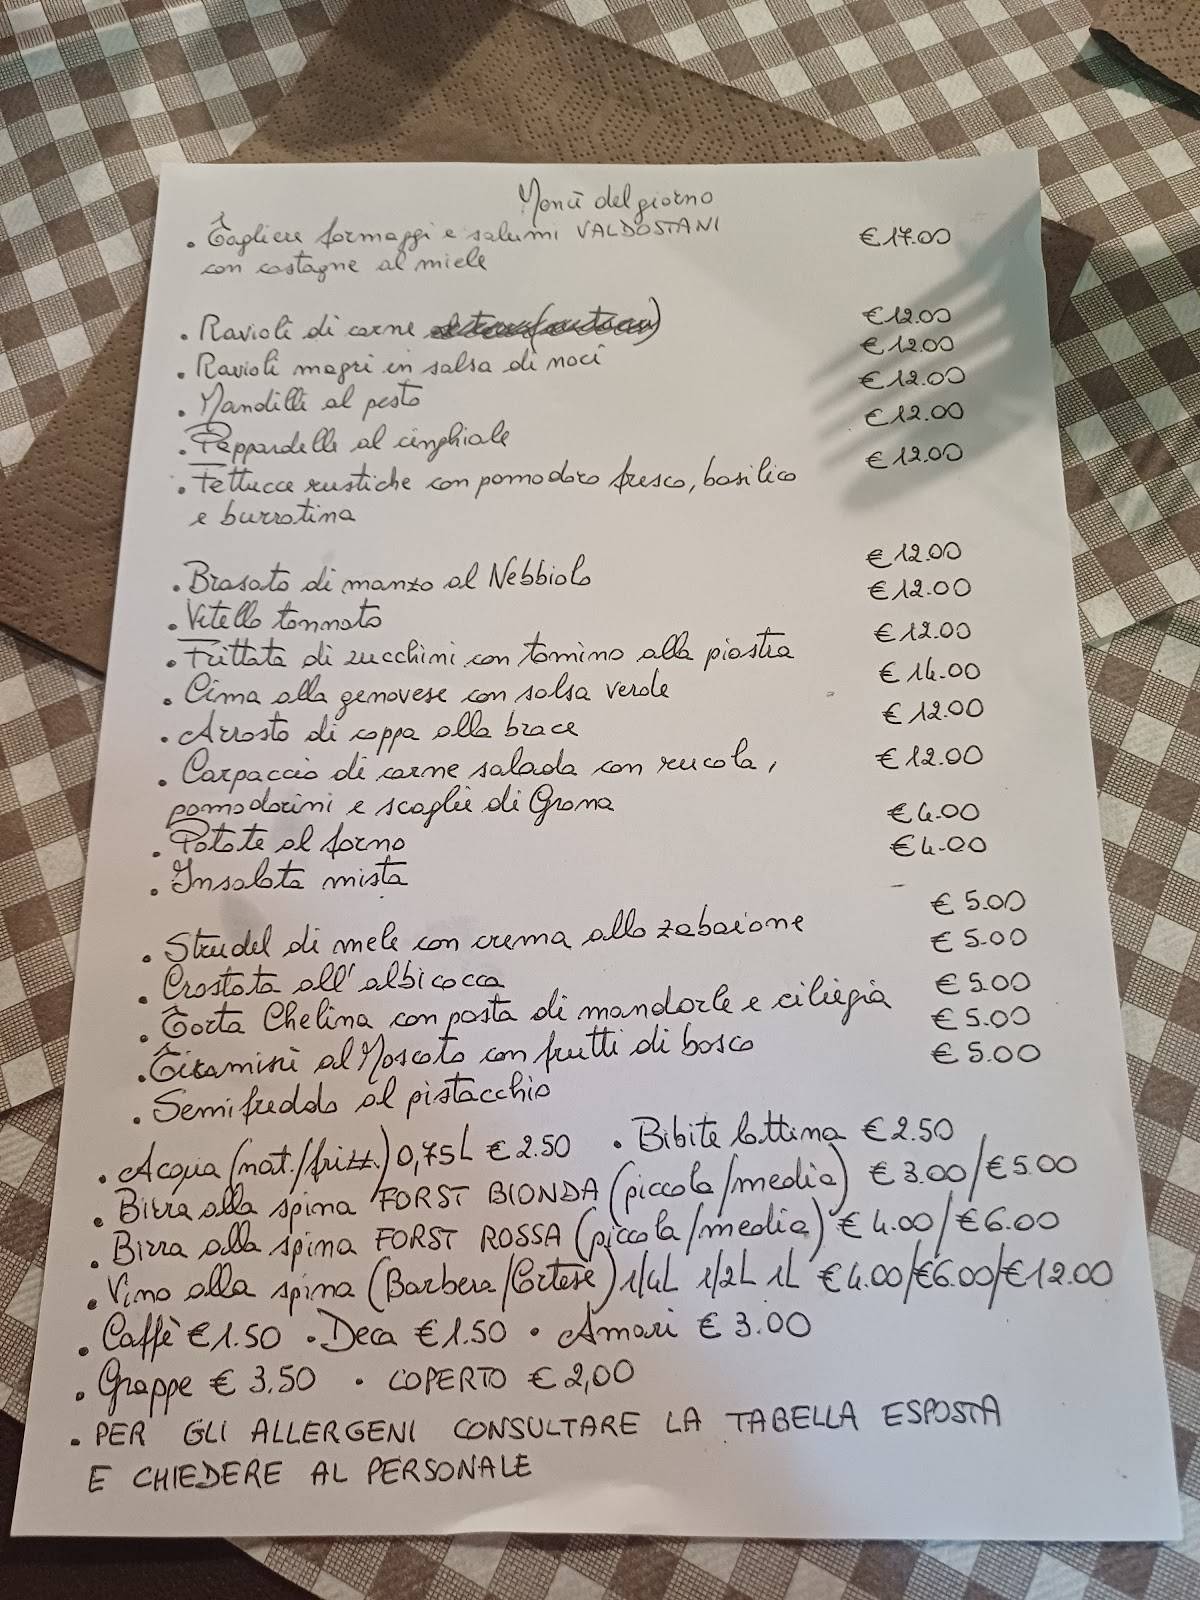 Menù del giorno
• Tagliere formaggi e salumi VALDOSTANI €17.00
con castagne al miele
• Ravioli di carne €12.00
• Ravioli magri in salsa di noci €12.00
• Mandilli al pesto €12.00
• Pappardelle al cinghiale €12.00
• Fettucce rustiche con pomodoro fresco, basilico €12.00
e burratina
• Brasato di manzo al Nebbiolo €12.00
• Vitello tonnato €12.00
• Frittata di zucchini con tomino alla piastra €12.00
• Cima alla genovese con salsa verde €14.00
• Arrosto di coppa alla brace €12.00
• Carpaccio di carne salada con rucola, €12.00
pomodorini e scaglie di Grana
• Patate al forno €4.00
• Insalata mista €4.00
• Strudel di mele con crema allo zabaione €5.00
• Crostata all'albicocca €5.00
• Torta Chelina con pasta di mandorle e ciliegia €5.00
• Tiramisù al Moscato con frutti di bosco €5.00
• Semifreddo al pistacchio €5.00
• Acqua (nat./frizz.) 0,75L €2.50 • Bibite lattina €2.50
• Birra alla spina FORST BIONDA (piccola/media) €3.00/€5.00
• Birra alla spina FORST ROSSA (piccola/media) €4.00/€6.00
• Vino alla spina (Barbera/Cortese) 1/4L 1/2L 1L €4.00/€6.00/€12.00
• Caffè €1.50 • Deca €1.50 • Amari €3.00
• Grappe €3.50 • COPERTO €2,00
• PER GLI ALLERGENI CONSULTARE LA TABELLA ESPOSTA
E CHIEDERE AL PERSONALE